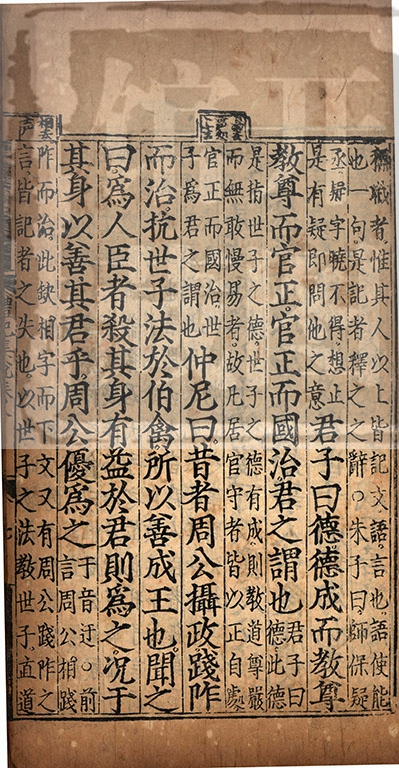 稱職者惟其人以上皆記文語言也語使能
也一句是記者釋之之辭○朱子曰師保疑
丞疑字曉不得想止
是有疑即問他之意
君子曰德德成而教尊
教尊而官正官正而國治君之謂也
君子曰
德此德
是指世子之德世子之德有成則教道尊嚴
而無敢慢易者故凡居官守者皆以正自處
官正而國治世
子為君之謂也
仲尼曰昔者周公攝政踐阼
而治抗世子法於伯禽所以善成王也聞之
曰為人臣者殺其身有益於君則為之况于
其身以善其君乎周公優為之
于音迂○前
言周公相踐
阼而治此缺相字而下文又有周公踐阼之
言皆記者之失也以世子之法教世子直道